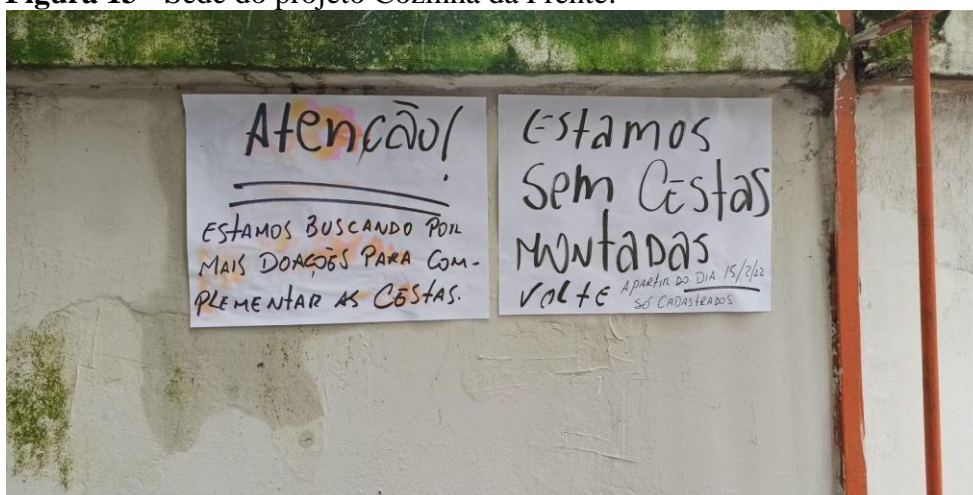 Figura 15 - Sede do projeto Cozinha da Frente.
Atenção!
ESTAMOS BUSCANDO POR
MAIS DOAÇÕES PARA COM-
PLEMENTAR AS CESTAS.
EStamos
Sem CEStas
MONtaDaS
VOLtE APARTIR DO DIA 15/2/22
SÓ CADASTRADOS